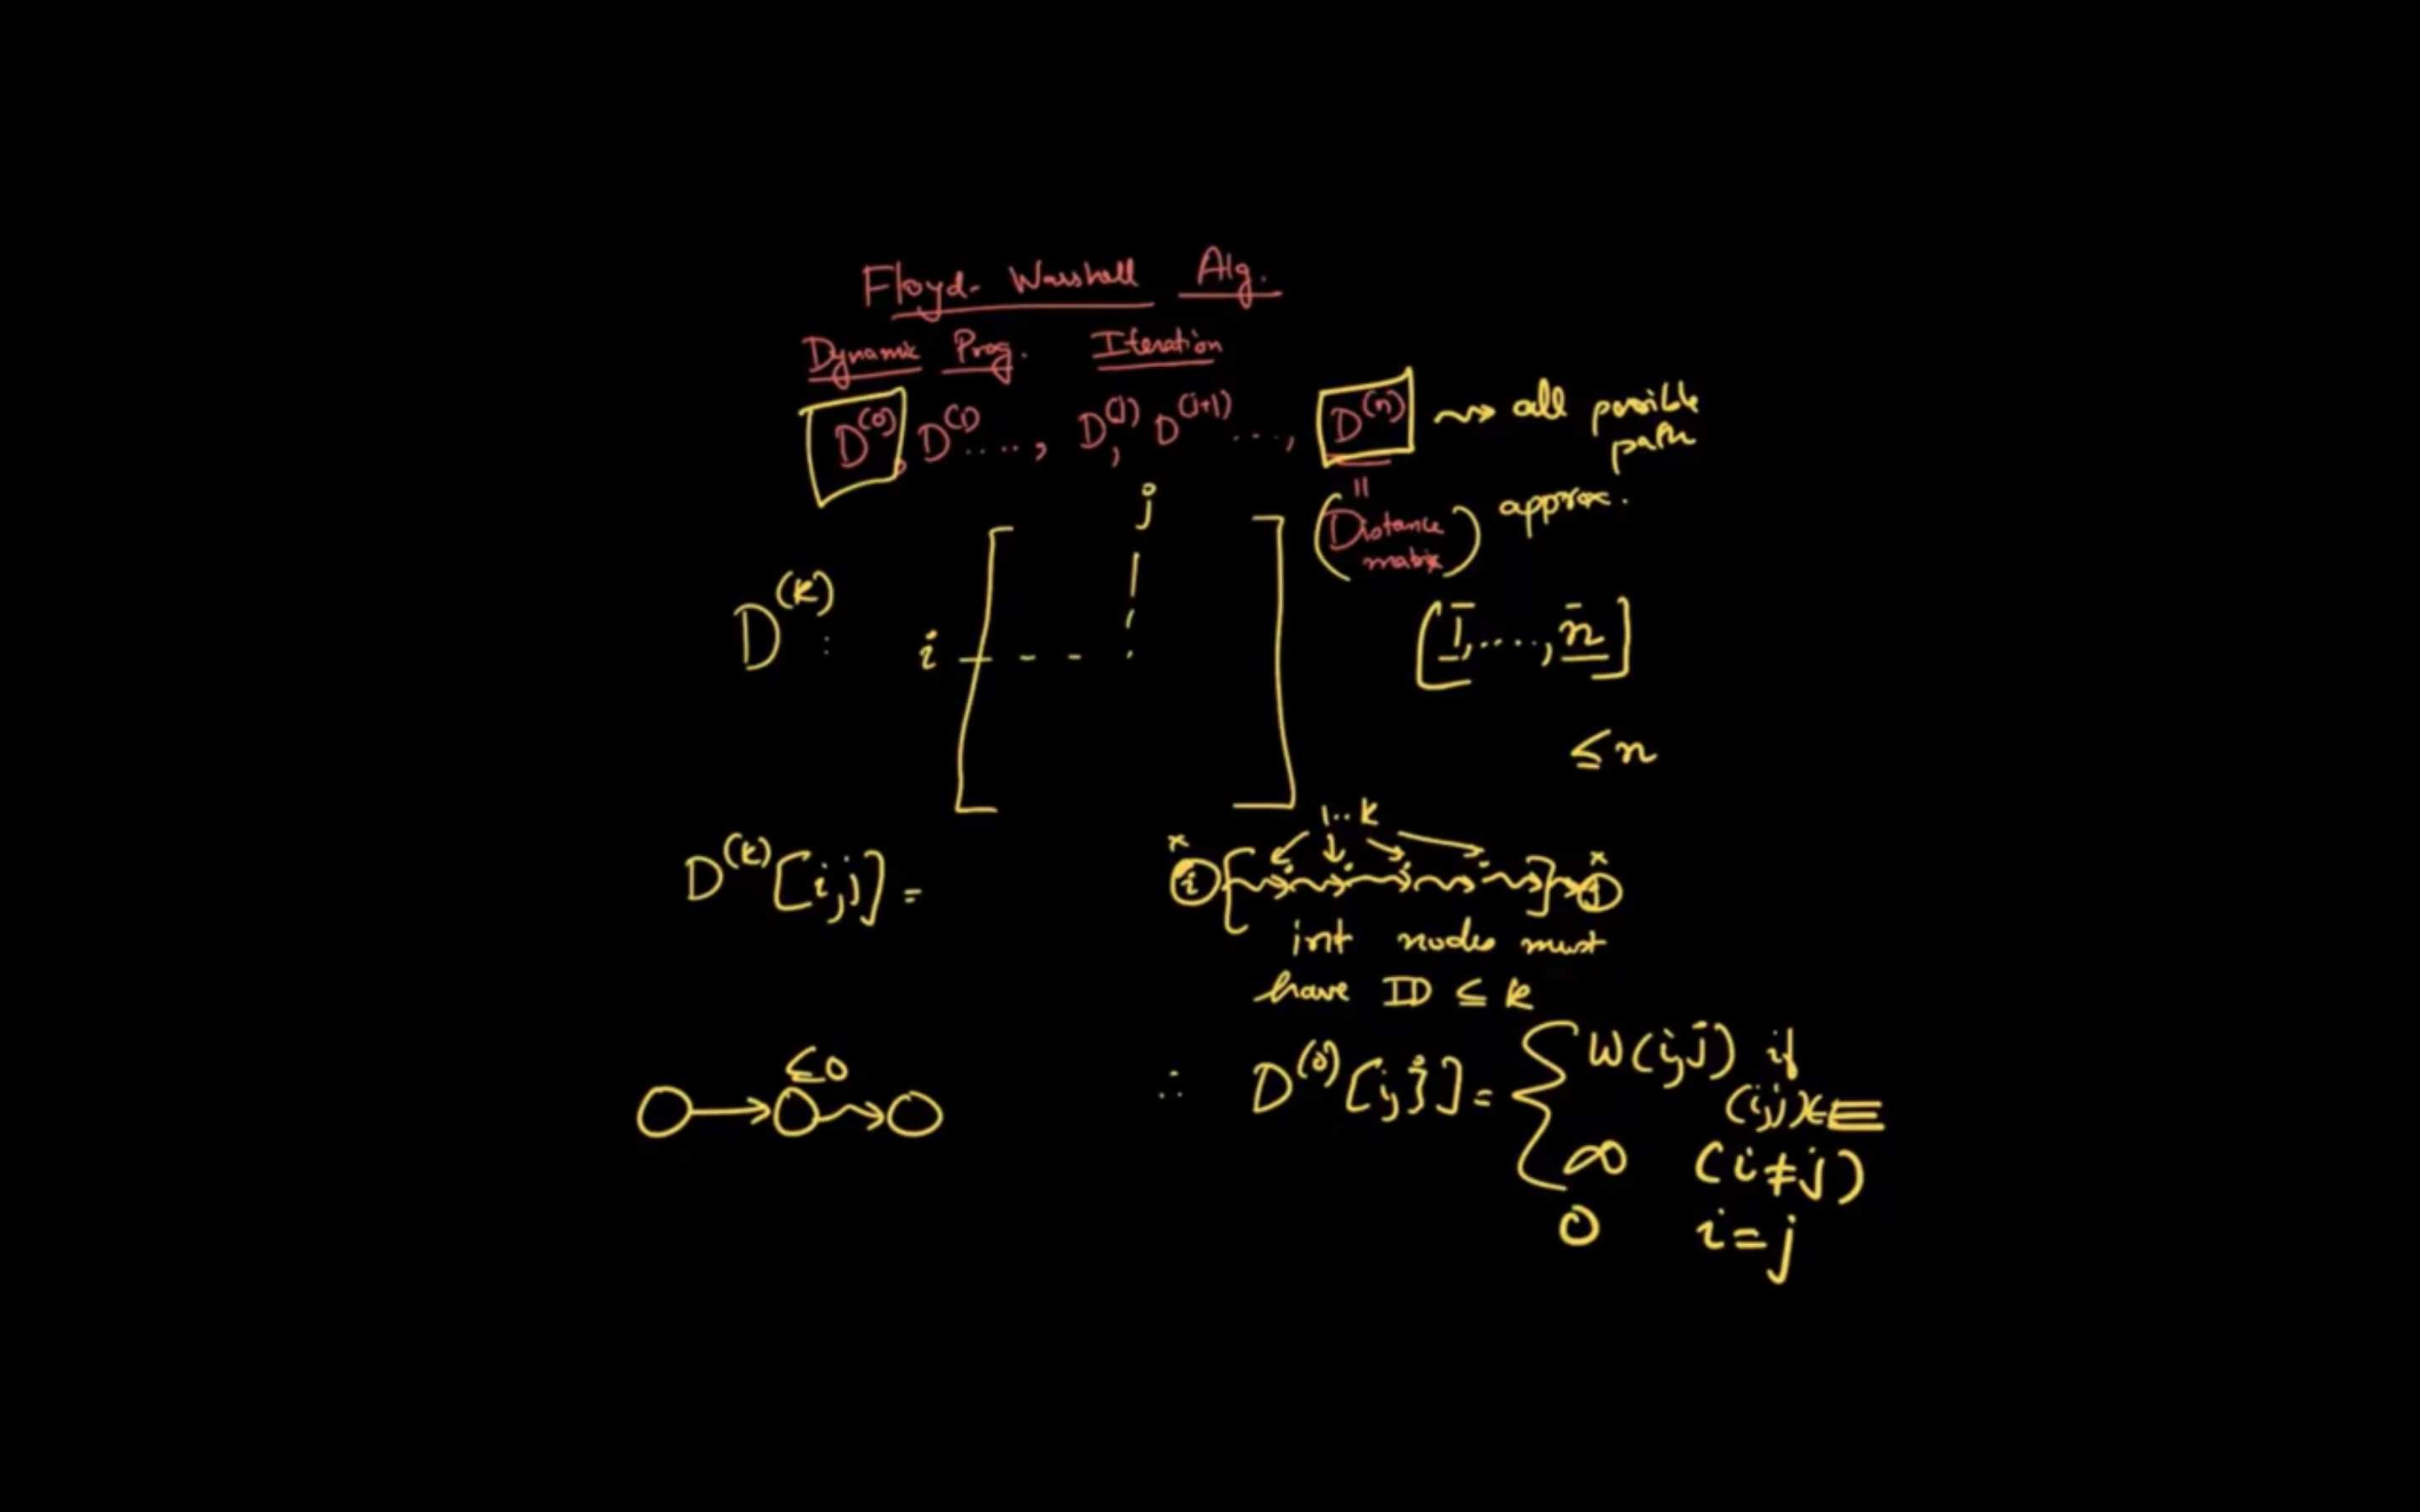 Floyd-Warshall Alg.
Dynamic Prog. Iteration
D^(0), D^(1)...., D^(j), D^(j+1)..., D^(n) ⇝ all possible
path
= (Distance matrix) approx.
j
D^(k): i
[1,....,n]
≤ n
1..k
D^(k)[i,j] = i j
int nodes must
have ID ≤ k
≤0
∴ D^(0)[i,j] = { W(i,j) if
(i,j) ∈ E
∞ (i≠j)
0 i=j